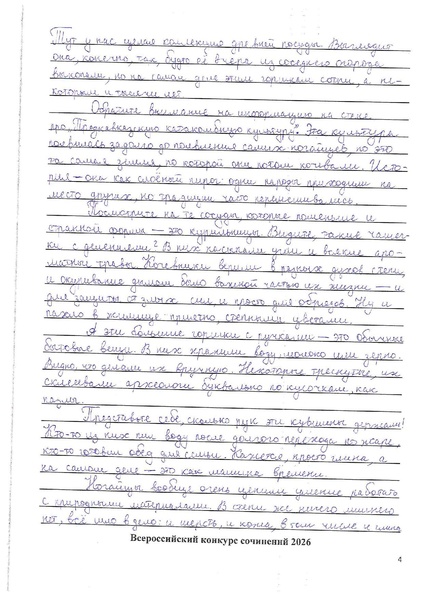 Тут у нас целая коллекция древней посуды. Выглядит
она, конечно, так, будто её вчера из соседнего огорода
выкопали, но на самом деле этим горшкам сотни, а не-
которым и тысячи лет.
Обратите внимание на информацию на стене
про „Предкавказскую катакомбную культуру". Эта культура
появилась задолго до появления самих ногайцев, но это
та самая земля, по которой они потом кочевали. Исто-
рия — она как слоёный пирог: одни народы приходили на
место других, но традиции часто перемешивались.
Посмотрите на те сосуды, которые поменьше и
странной формы — это курильницы. Видите, такие чашеч-
ки с делениями? В них насыпали угли и всякие аро-
матные травы. Кочевники верили в разных духов степи,
и окуривание дымом было важной частью их жизни — и
для защиты от злых сил, и просто для обрядов. Ну и
пахло в жилище приятно, степными цветами.
А эти большие горшки с ручками — это обычные
бытовые вещи. В них хранили воду, молоко или зерно.
Видно, что делали их вручную. Некоторые треснутые, их
склеивали археологи буквально по кусочкам, как
пазлы.
Представьте себе, сколько рук эти кувшины держали!
Кто-то из них пил воду после долгого перехода по жаре,
кто-то готовил обед для семьи. Кажется, просто глина, а
на самом деле — это как машина времени.
Ногайцы вообще очень ценили умение работать
с природными материалами. В степи же ничего лишнего
нет, всё шло в дело: и шерсть, и кожа, в том числе и глина
Всероссийский конкурс сочинений 2026
4